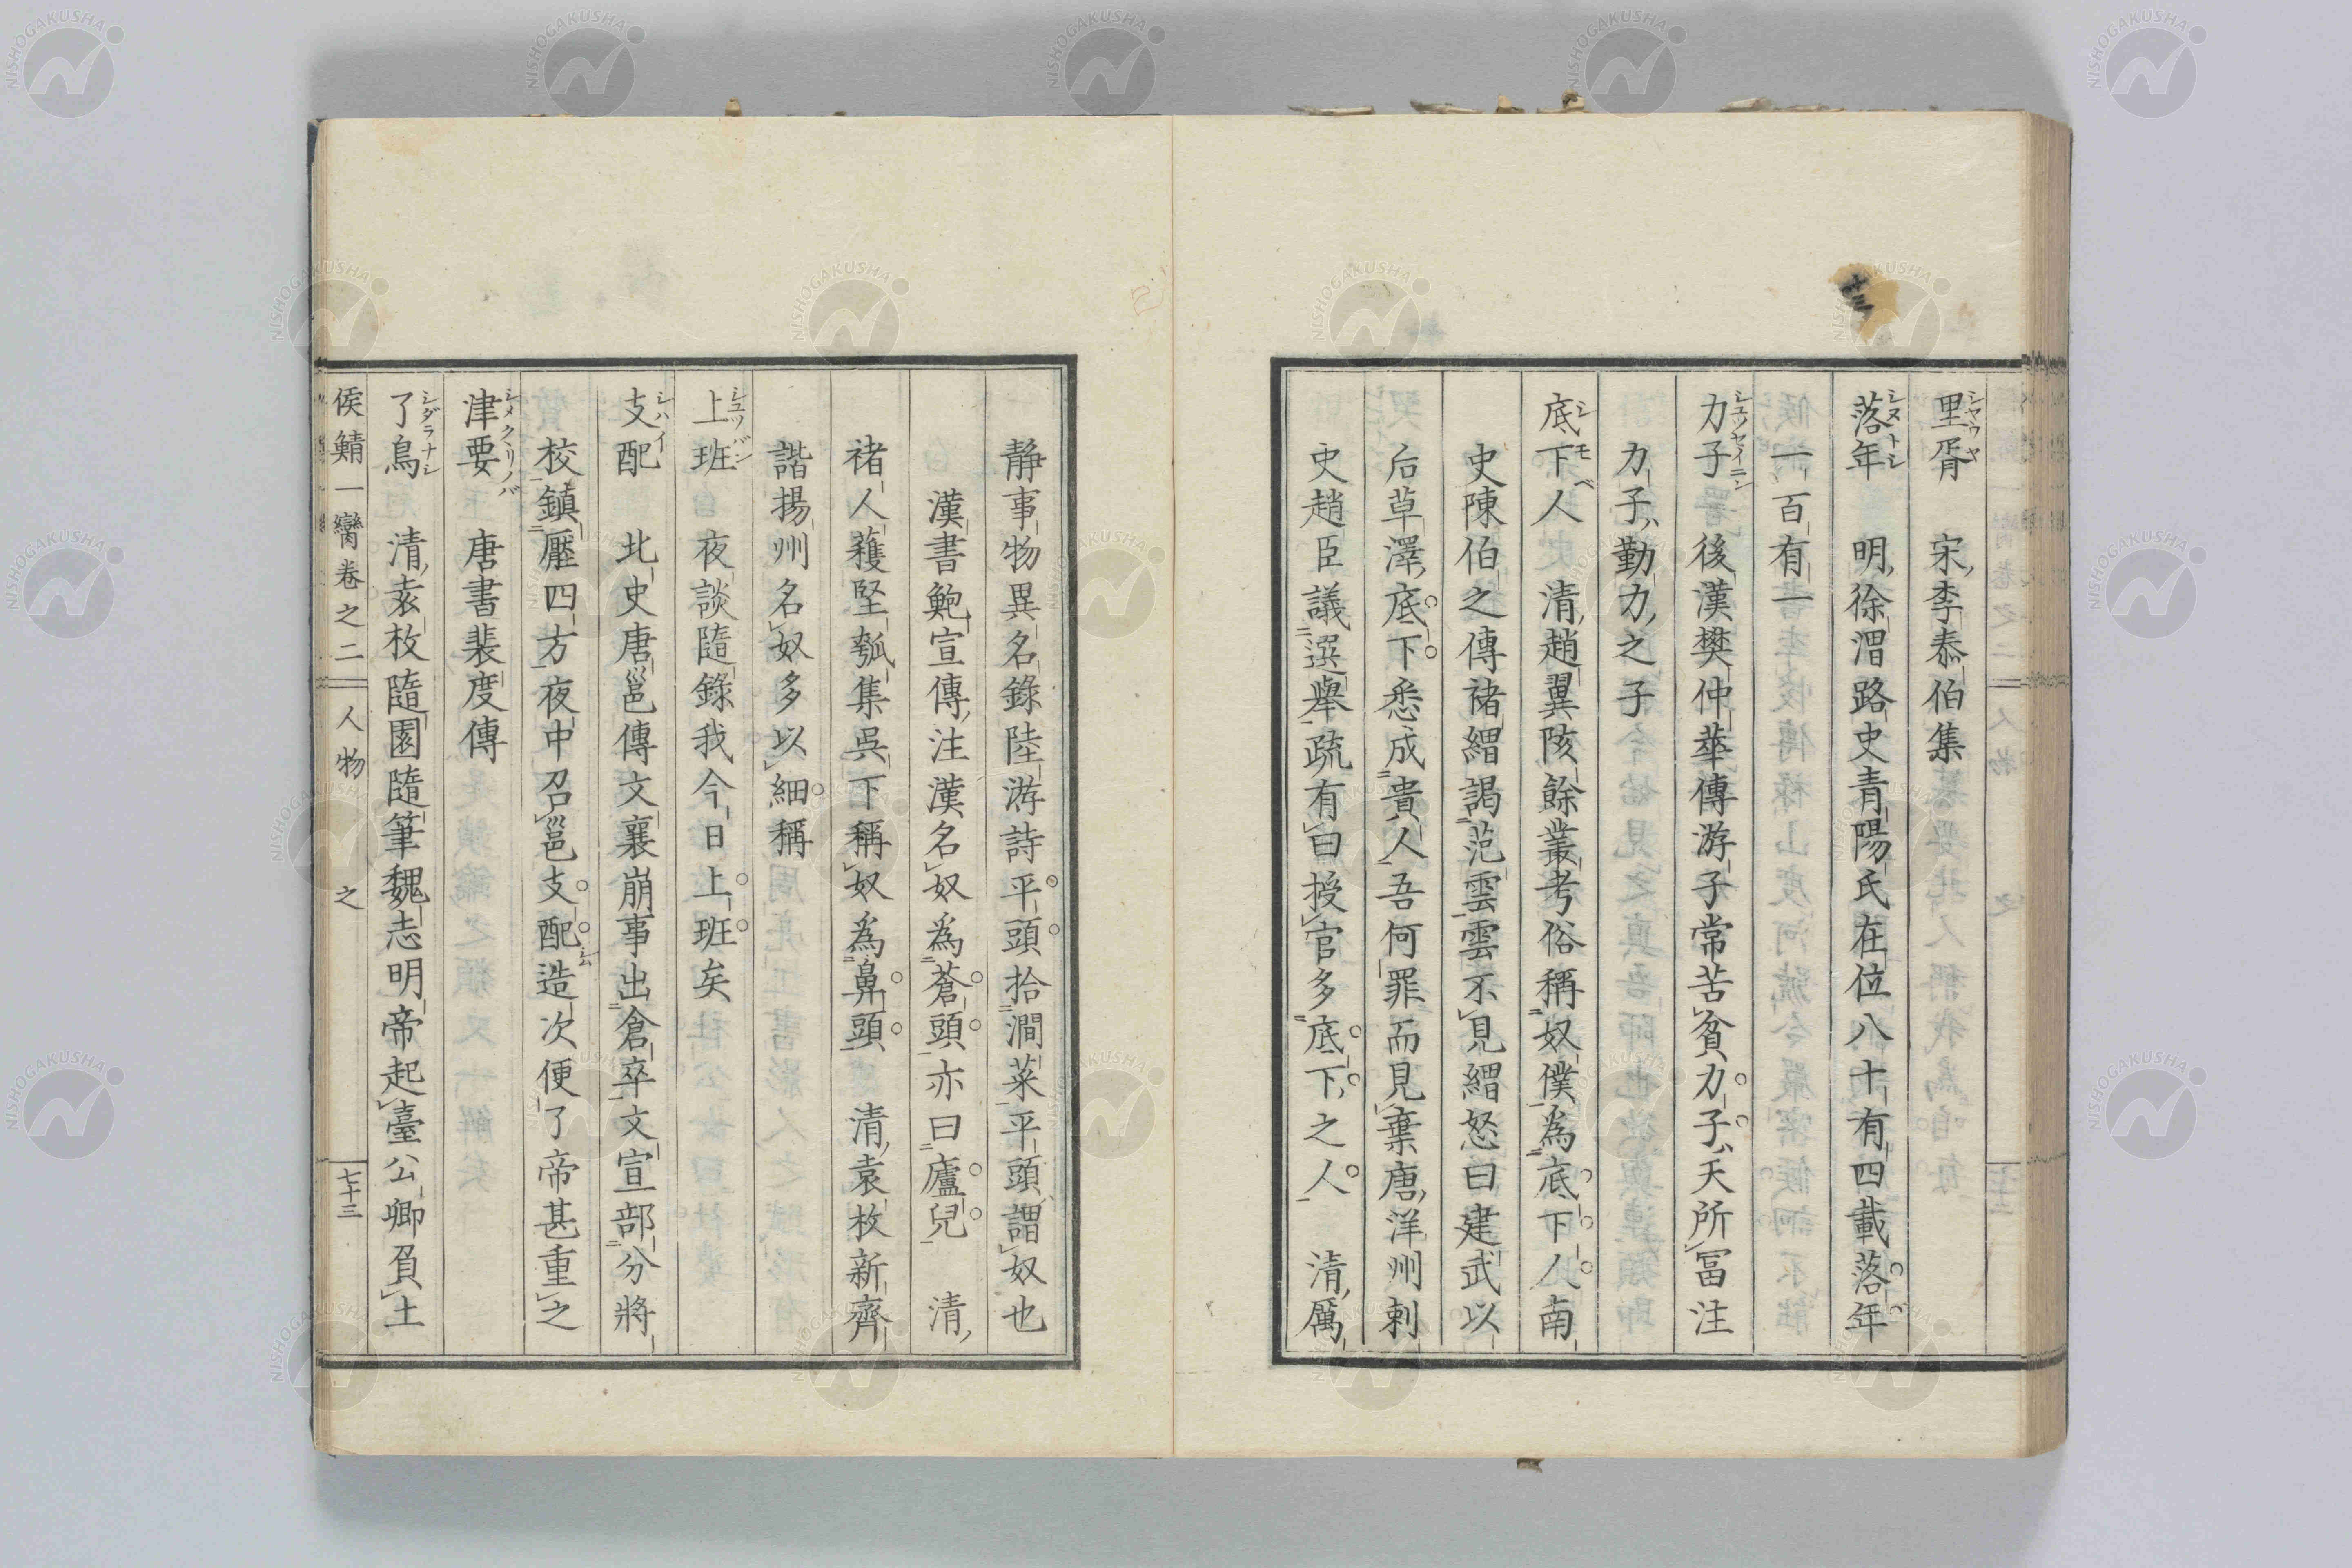 里胥シヤウヤ 宋李泰伯集
落年シヌトシ 明徐渭路史青陽氏在位八十有四載落年
一百有一
力子シユツセイニン 後漢樊仲華傳游子常苦貧力子天所冨注
力子ハ勤力之子
底下人シモベ 清趙翼陔餘叢考俗稱奴僕為底下人南
史陳伯之傳褚緭謁范雲雲不見緭怒曰建武以
后草澤底下悉成貴人吾何罪而見棄唐洋州刺
史趙臣議選舉疏有曰授官多底下之人 清厲
静事物異名錄陸游詩平頭拾澗菜平頭ハ謂奴也
漢書鮑宣傳注漢名奴為蒼頭亦曰廬兒 清
褚人穫堅瓠集吳下稱奴為鼻頭 清袁枚新齊
諧揚州名奴多以細稱
上班シユツバン 夜談隨錄我今日上班矣
支配シハイ 北史唐邕傳文襄崩事出倉卒文宣部分將
校鎮壓四方夜中召邕支配造次便了帝甚重之
津要シメクリノバ 唐書裴度傳
了鳥シダラナシ 清袁枚隨園隨筆魏志明帝起臺公卿負土
侯鯖一臠卷之二 人物 之 七十三
NISHOGAKUSHA